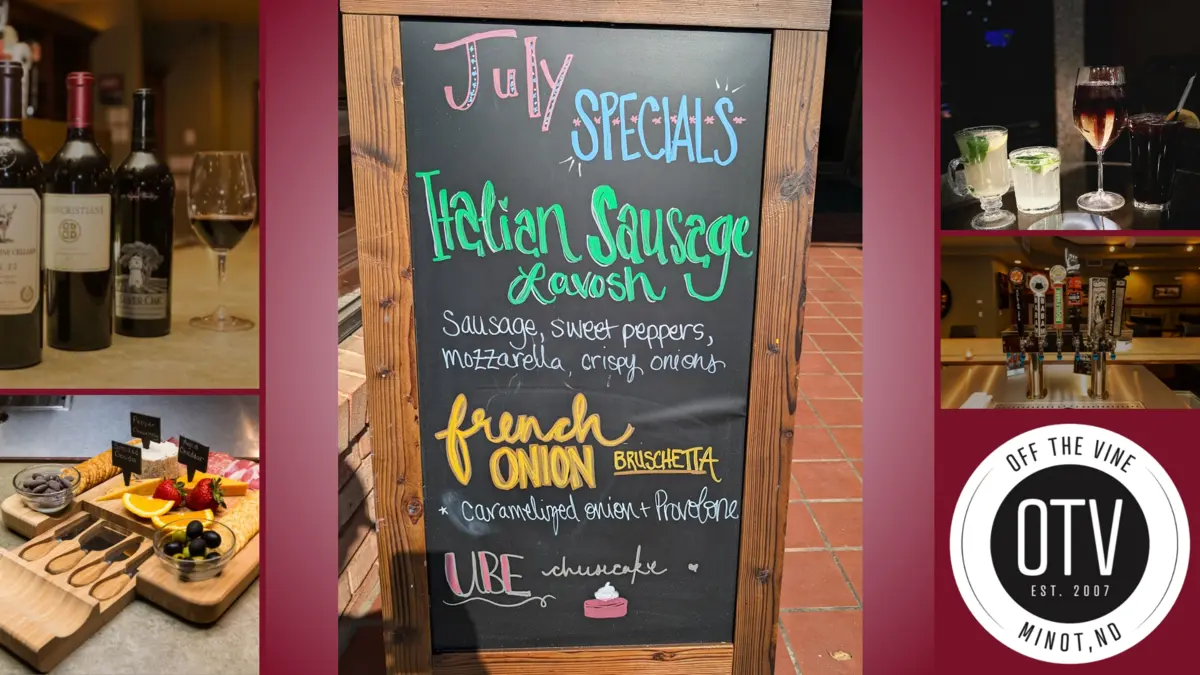 July
SPECIALS
Italian Sausage
Lavosh
Sausage, sweet peppers,
mozzarella, crispy onions
french
ONION BRUSCHETTA
* caramelized onion + Provolone
UBE cheesecake
OFF THE VINE
OTV
EST. 2007
MINOT, ND
SILVER OAK